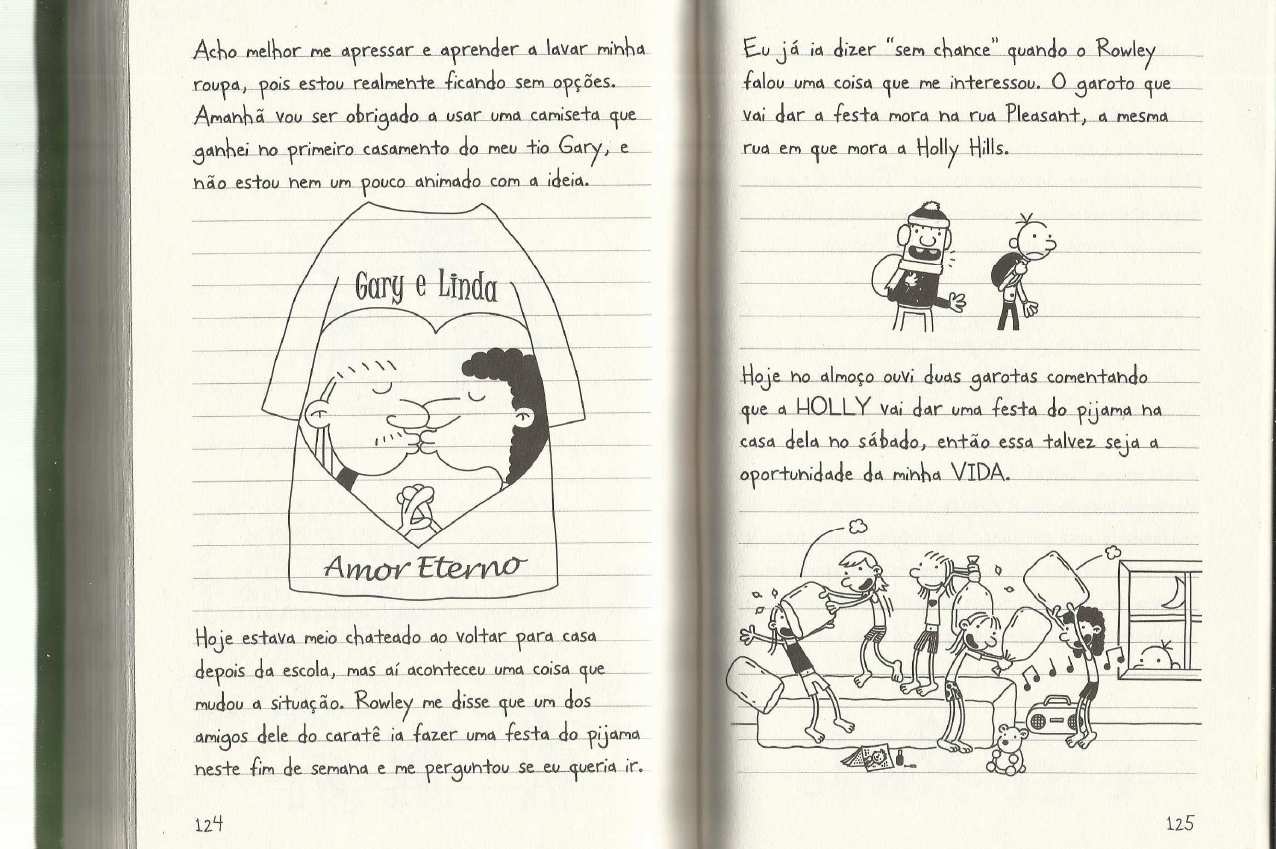 Acho melhor me apressar e aprender a lavar minha
roupa, pois estou realmente ficando sem opções.
Amanhã vou ser obrigado a usar uma camiseta que
ganhei no primeiro casamento do meu tio Gary, e
não estou nem um pouco animado com a ideia.
Gary e Linda
Amor Eterno
Hoje estava meio chateado ao voltar para casa
depois da escola, mas aí aconteceu uma coisa que
mudou a situação. Rowley me disse que um dos
amigos dele do caratê ia fazer uma festa do pijama
neste fim de semana e me perguntou se eu queria ir.
124
Eu já ia dizer "sem chance" quando o Rowley
falou uma coisa que me interessou. O garoto que
vai dar a festa mora na rua Pleasant, a mesma
rua em que mora a Holly Hills.
Hoje no almoço ouvi duas garotas comentando
que a HOLLY vai dar uma festa do pijama na
casa dela no sábado, então essa talvez seja a
oportunidade da minha VIDA.
125